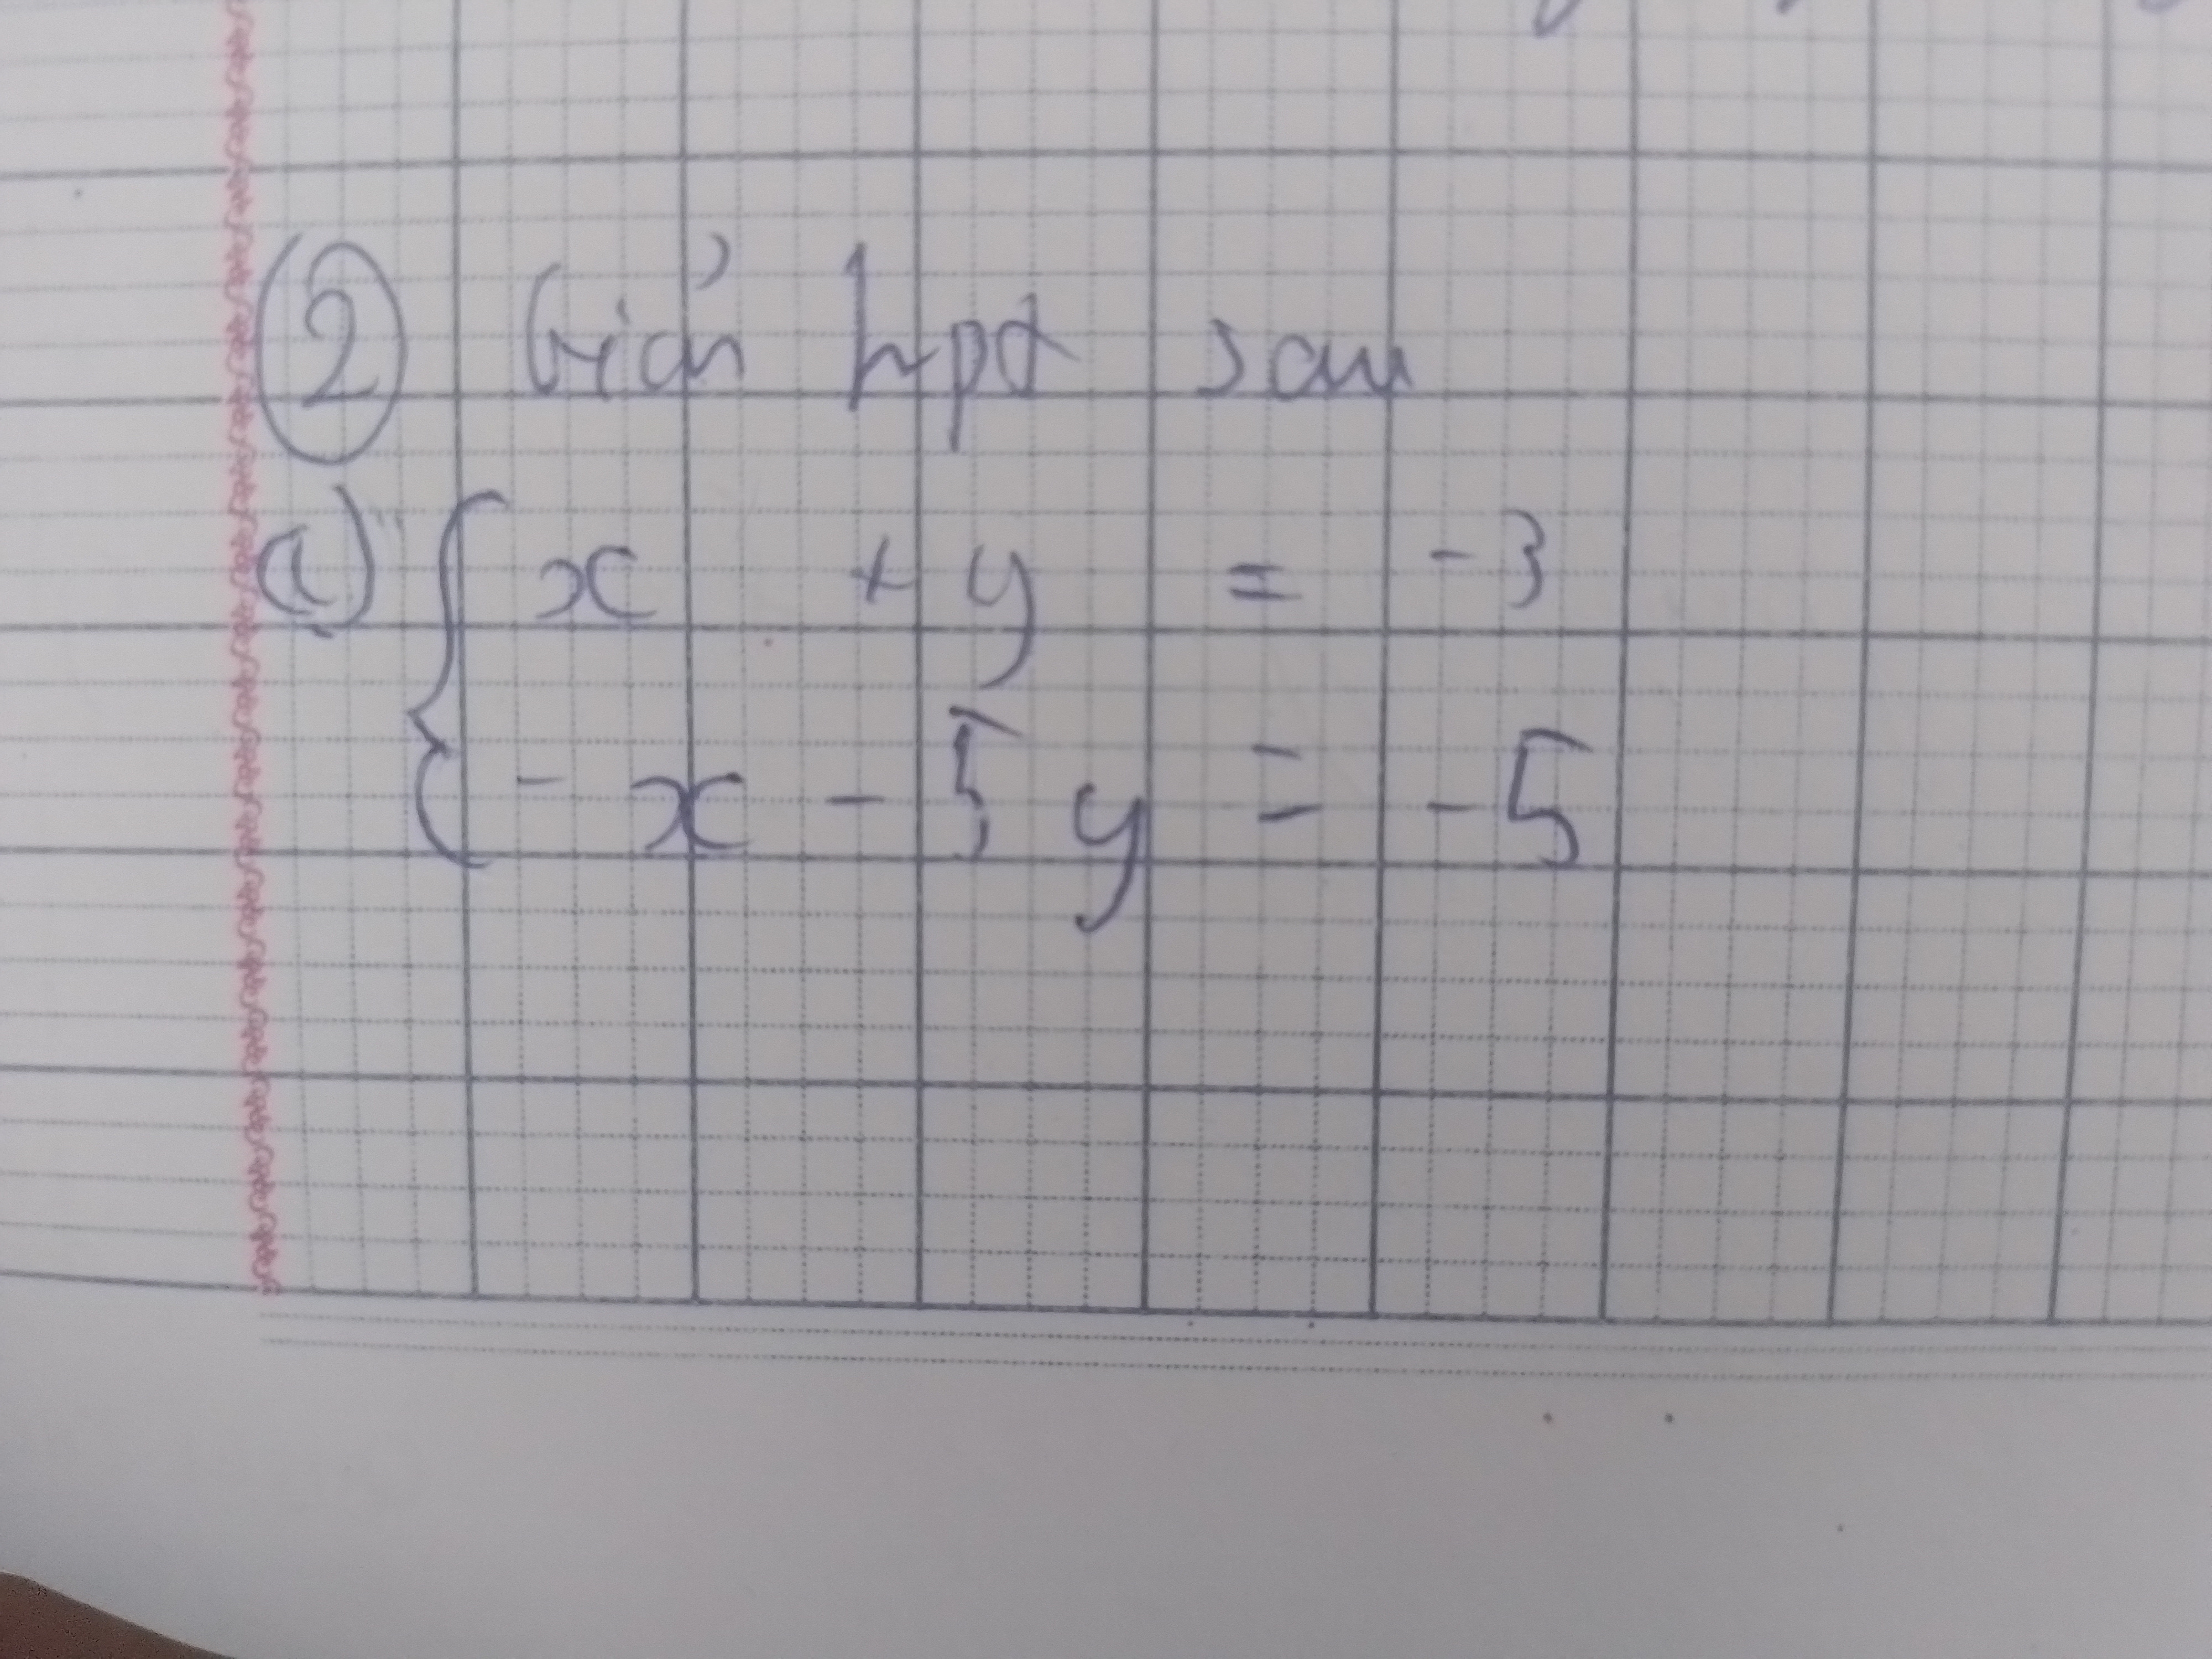 ② Giải hpt sau
a) { x + y = -3
- x - 5 y = -5